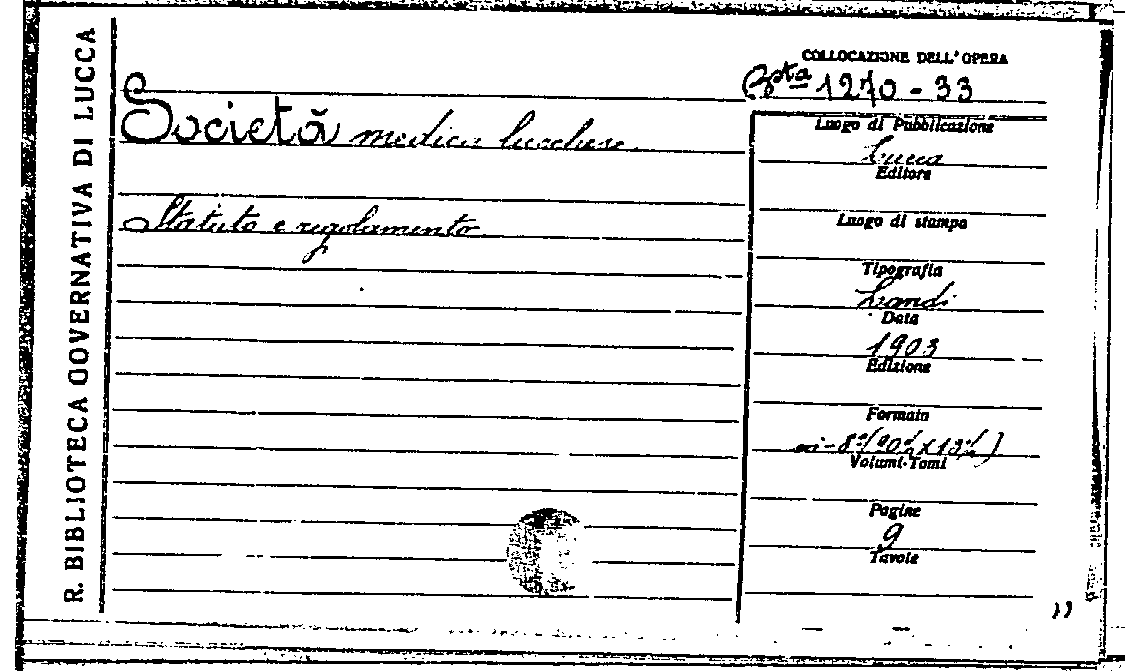 R. BIBLIOTECA GOVERNATIVA DI LUCCA
COLLOCAZIONE DELL'OPERA
Bta 1270-33
Società medica lucchese
Statuto e regolamento
Luogo di Pubblicazione
Lucca
Editore
Luogo di stampa
Tipografia
Landi
Data
1903
Edizione
Formato
in-8°
Volumi-Tomi
Pagine
9
Tavole